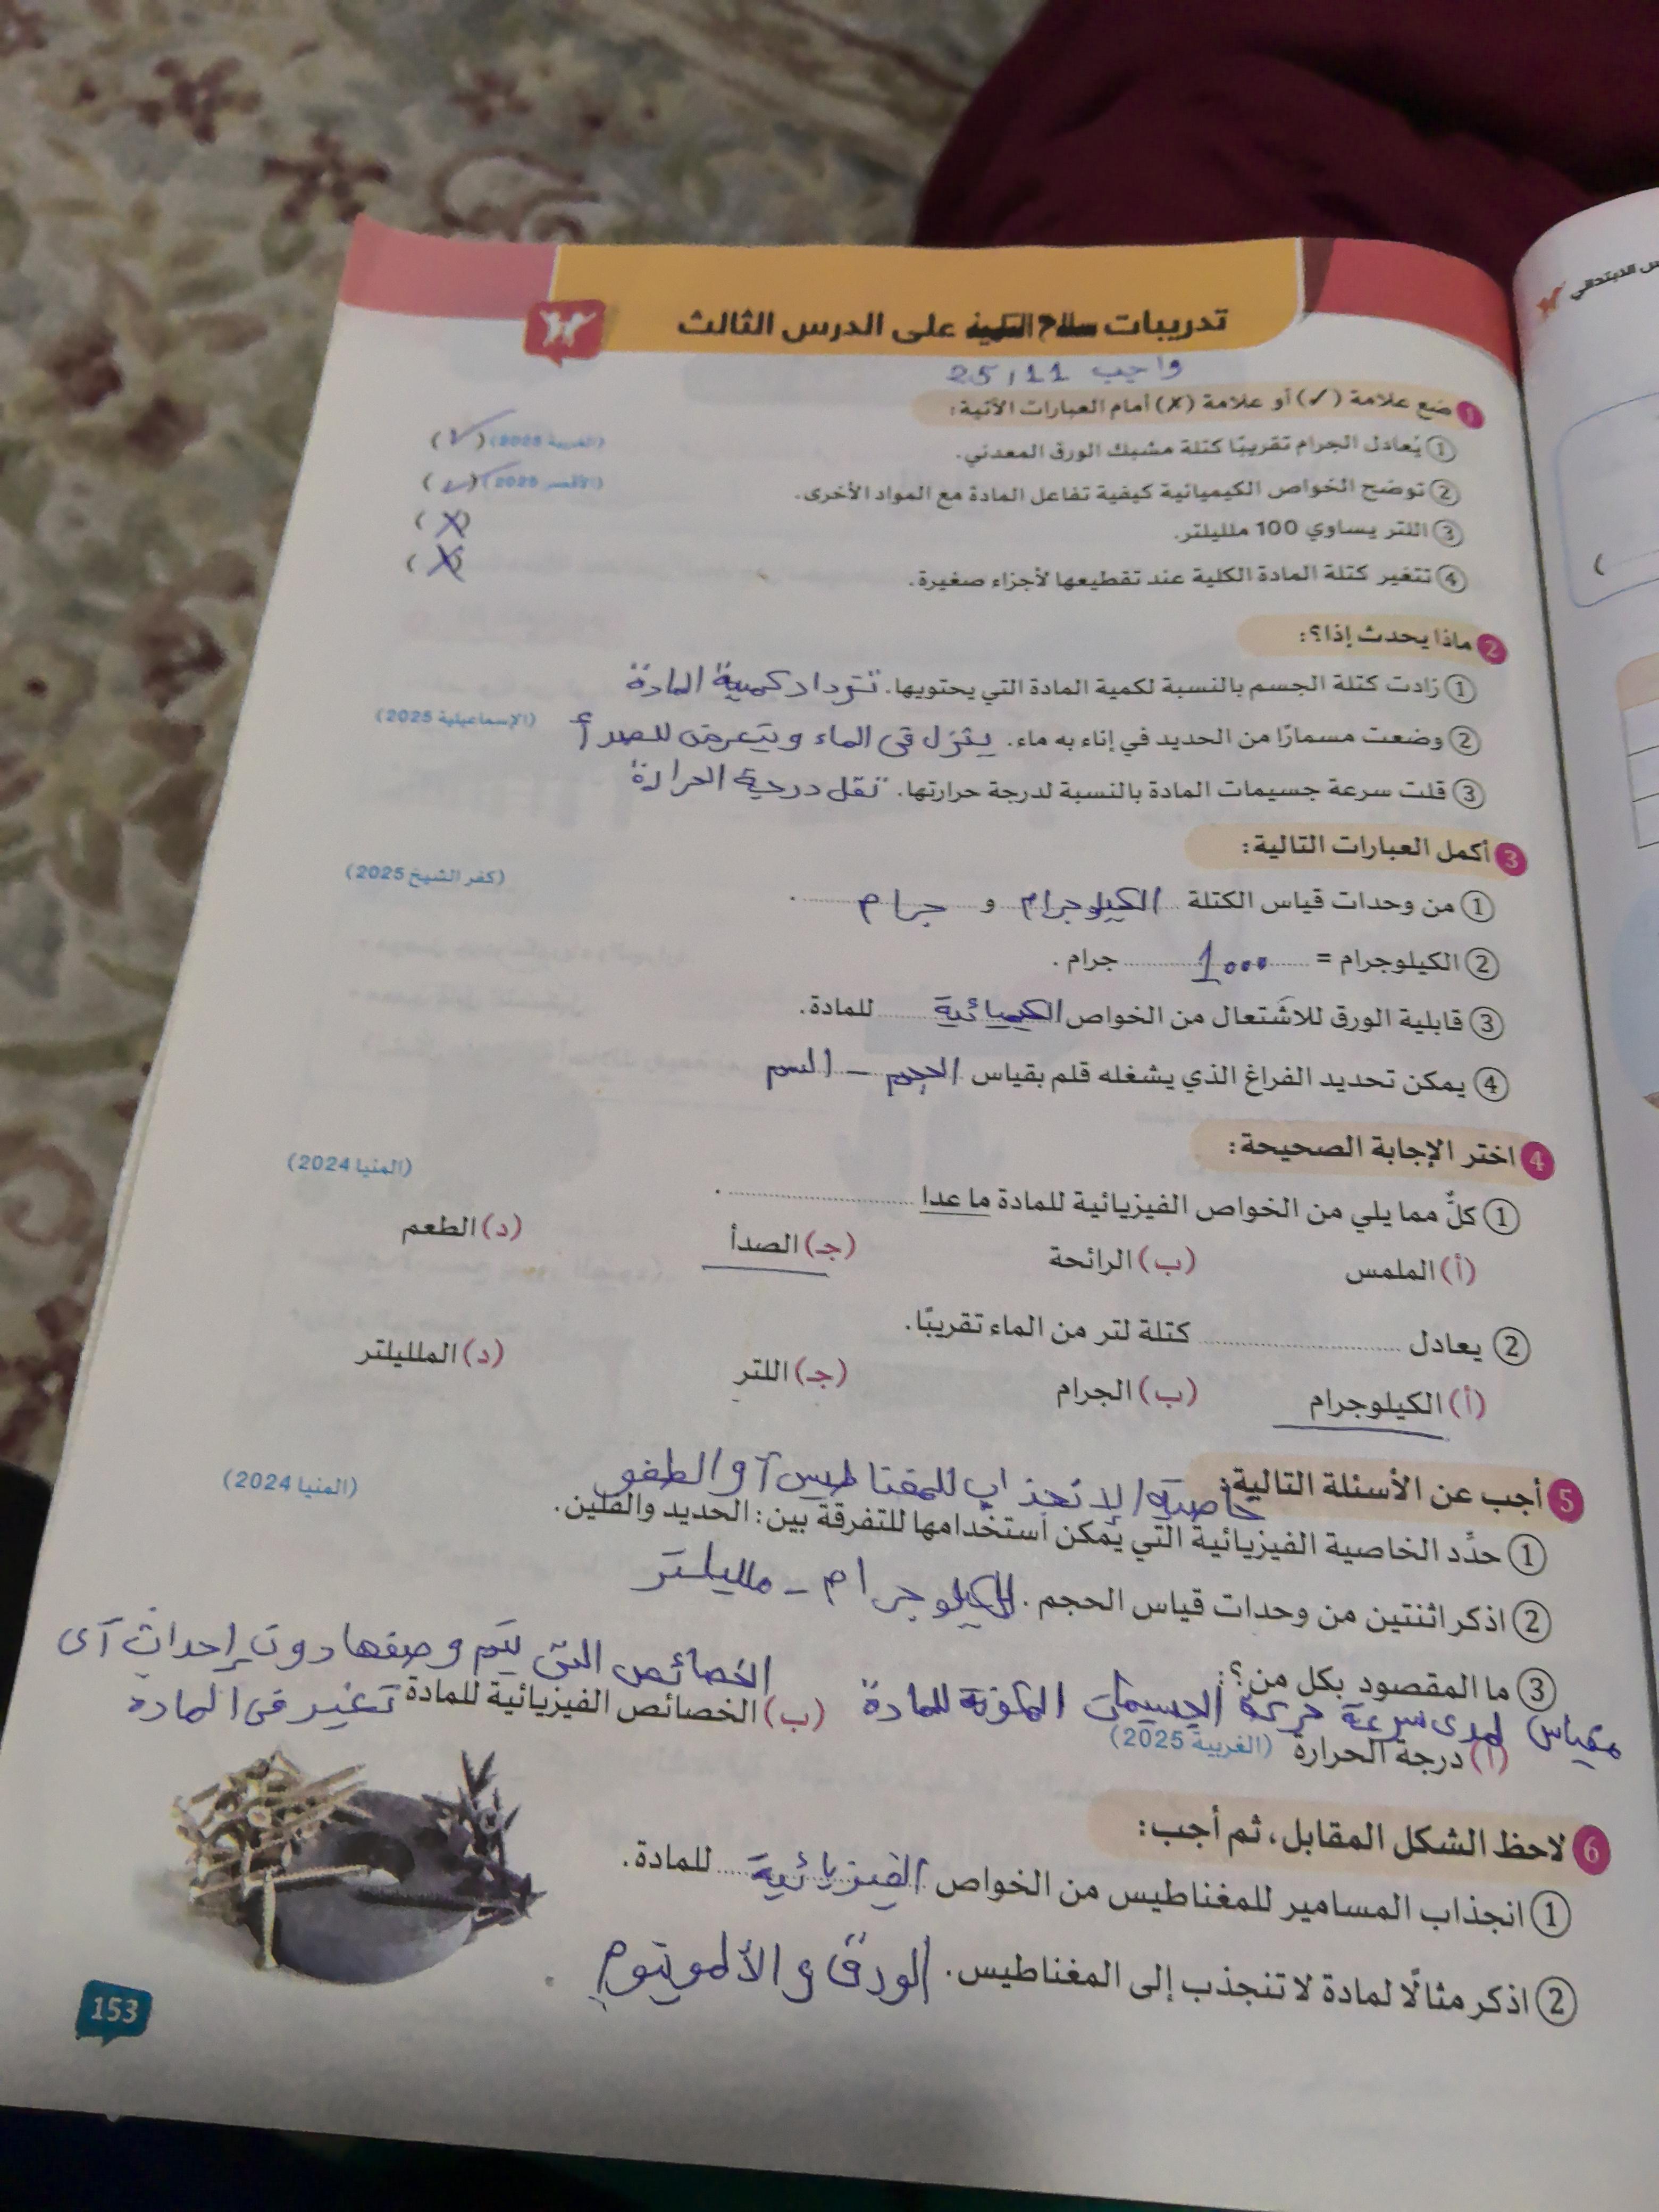 تدريبات سلاح التلميذ على الدرس الثالث
واجب 25/11
1 ضع علامة (✓) أو علامة (✗) أمام العبارات الآتية:
① يُعادل الجرام تقريبًا كتلة مشبك الورق المعدني. (الغربية 2025) (✓)
② توضح الخواص الكيميائية كيفية تفاعل المادة مع المواد الأخرى. (الأقصر 2025) (✓)
③ اللتر يساوي 100 ملليلتر. (X)
④ تتغير كتلة المادة الكلية عند تقطيعها لأجزاء صغيرة. (X)
2 ماذا يحدث إذا؟:
① زادت كتلة الجسم بالنسبة لكمية المادة التي يحتويها. تزداد كمية المادة
② وضعت مسمارًا من الحديد في إناء به ماء. ينزل في الماء ويتعرض للصدأ (الإسماعيلية 2025)
③ قلت سرعة جسيمات المادة بالنسبة لدرجة حرارتها. تقل درجة الحرارة
3 أكمل العبارات التالية:
① من وحدات قياس الكتلة الكيلوجرام و جرام . (كفر الشيخ 2025)
② الكيلوجرام = 1000 جرام .
③ قابلية الورق للاشتعال من الخواص الكيميائية للمادة.
④ يمكن تحديد الفراغ الذي يشغله قلم بقياس الحجم _
4 اختر الإجابة الصحيحة:
① كلٌّ مما يلي من الخواص الفيزيائية للمادة ما عدا ........ . (المنيا 2024)
(أ) الملمس (ب) الرائحة (جـ) الصدأ (د) الطعم
② يعادل ........ كتلة لتر من الماء تقريبًا.
(أ) الكيلوجرام (ب) الجرام (جـ) اللتر (د) الملليلتر
5 أجب عن الأسئلة التالية: (المنيا 2024)
خاصية الانجذاب للمغناطيس أو الطفو
① حدِّد الخاصية الفيزيائية التي يمكن استخدامها للتفرقة بين: الحديد والفلين.
② اذكر اثنتين من وحدات قياس الحجم. الكيلوجرام - ملليلتر
③ ما المقصود بكل من؟:
مقياس لمدى سرعة حركة الجسيمات المكونة للمادة
(أ) درجة الحرارة (الغربية 2025)
الخصائص التي يتم وصفها دون إحداث أي
(ب) الخصائص الفيزيائية للمادة تغير في المادة
6 لاحظ الشكل المقابل، ثم أجب:
① انجذاب المسامير للمغناطيس من الخواص الفيزيائية للمادة.
② اذكر مثالًا لمادة لا تنجذب إلى المغناطيس. الورق و الألمونيوم .
153